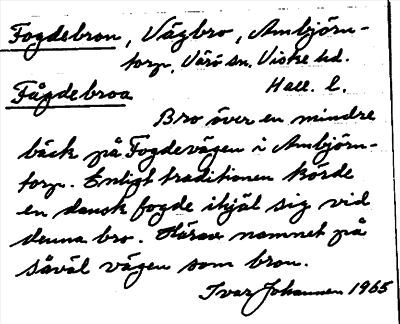 Fogdebron, Vägbro, Ambjörn-
torp, Värö sn. Viske hd.
Fågdebroa Hall. l.
Bro över en mindre
bäck på Fogdevägen i Ambjörn-
torp. Enligt traditionen körde
en dansk fogde ihjäl sig vid
denna bro. Härav namnet på
såväl vägen som bron.
Ivar Johansson 1965